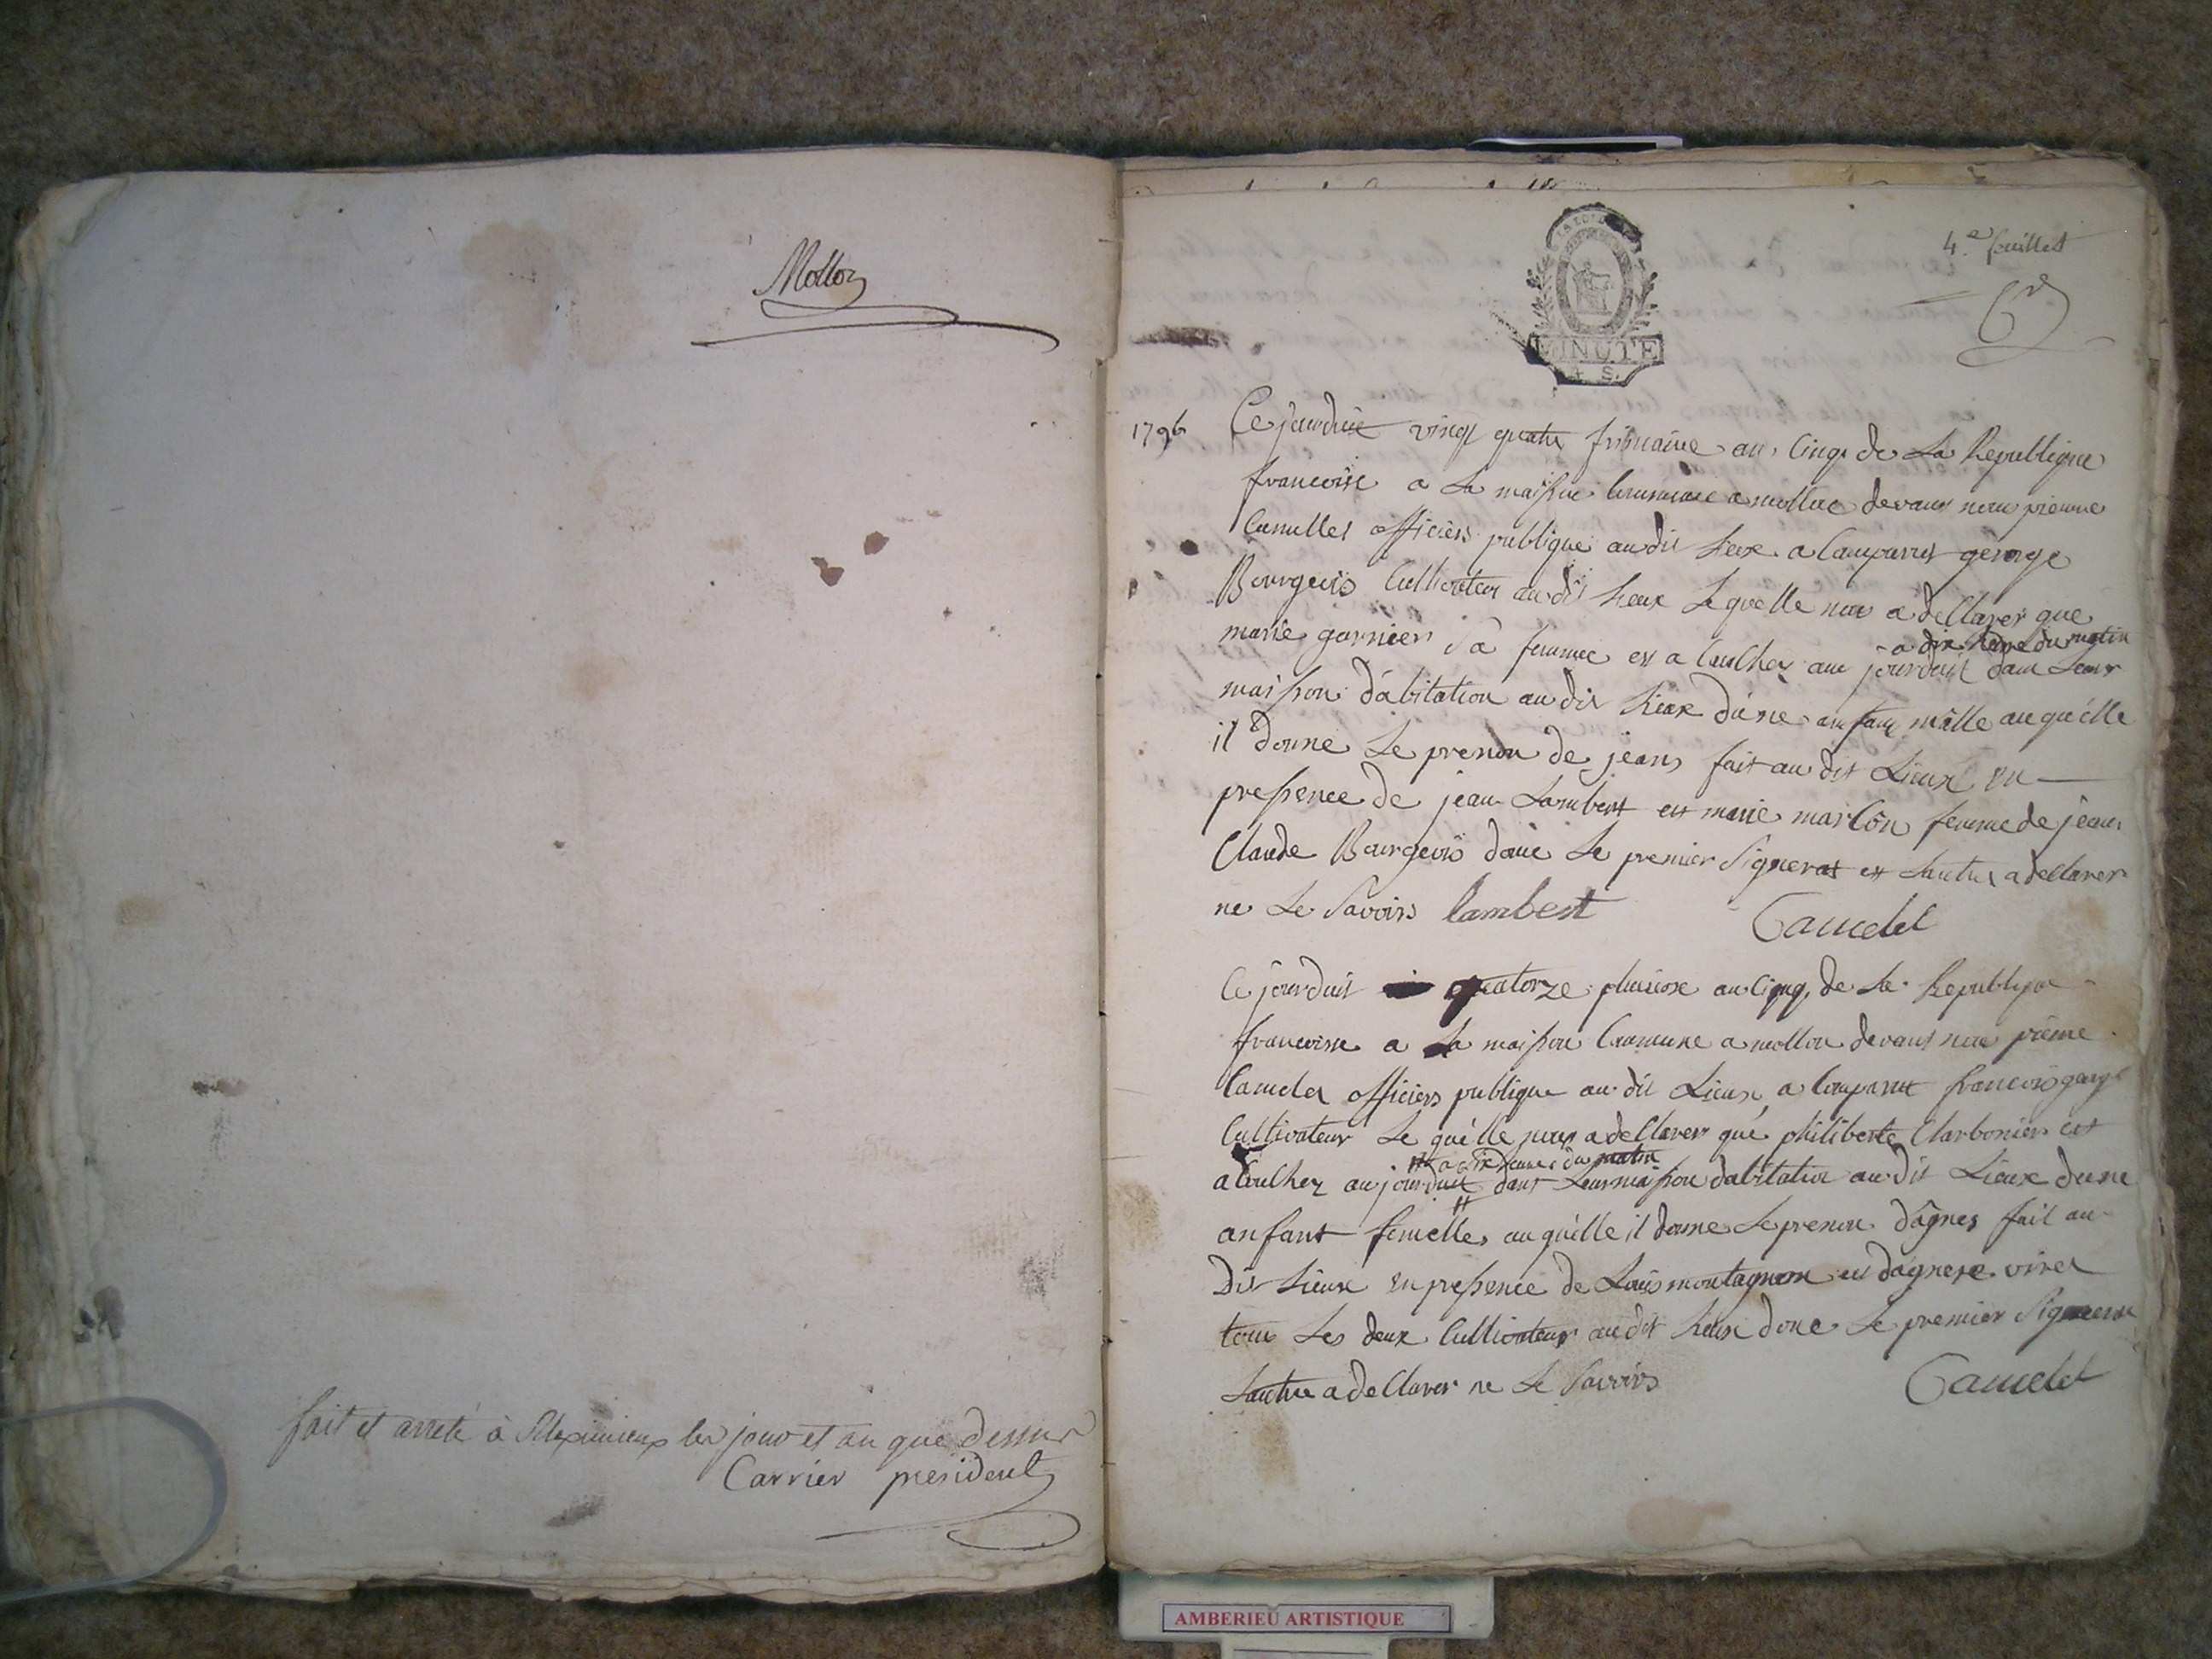 Mollon
fait et arreté à Meximieux les jour et an que dessus
Carrier president
4.e feuillet
MINUTE
1796
Ce jourduit vingt quatre frimaire an cinq de La Republique
francoise a La maison commune a mollon devant nou pierre
officiers publique audit Lieux a Comparut george
Bourgeois Cultivateur audit Lieux Le quelle nou a deClarer que
a dix heure du matin
marie garnier Sa femme es a Coucher au jourduit dans Leur
maison d'abitation audit Lieux dune anfant malle au quelle
il donne Le prenon de jean fait au dit Lieux en
presence de jean Lambert et marie marion femme de jean
Claude Bourgeois donc Le premier Signerat et Lautre a deClarer
ne Le Savoirs lambert
Camelet
Ce jourduit quatorze pluviose an Cinq de La Republique
francoise a La maison Commune a mollon devant nou pierre
Camelet officiers publique au dit Lieux a Comparut francois
Cultivateur Le quelle nous a deClarer que philiberte Charbonier est
a six heure du matin
a Coucher au jourduit dans Leur maison dabitation au dit Lieux dune
anfant femelle au quelle il donne Le prenon dagnes fait au
Dit Lieux en presence de Louis montagnon et
tous Les deux Cultivateur audit Lieux donc Le premier Signerat
Lautre a deClarer ne Le Savoirs
Camelet
AMBERIEU ARTISTIQUE